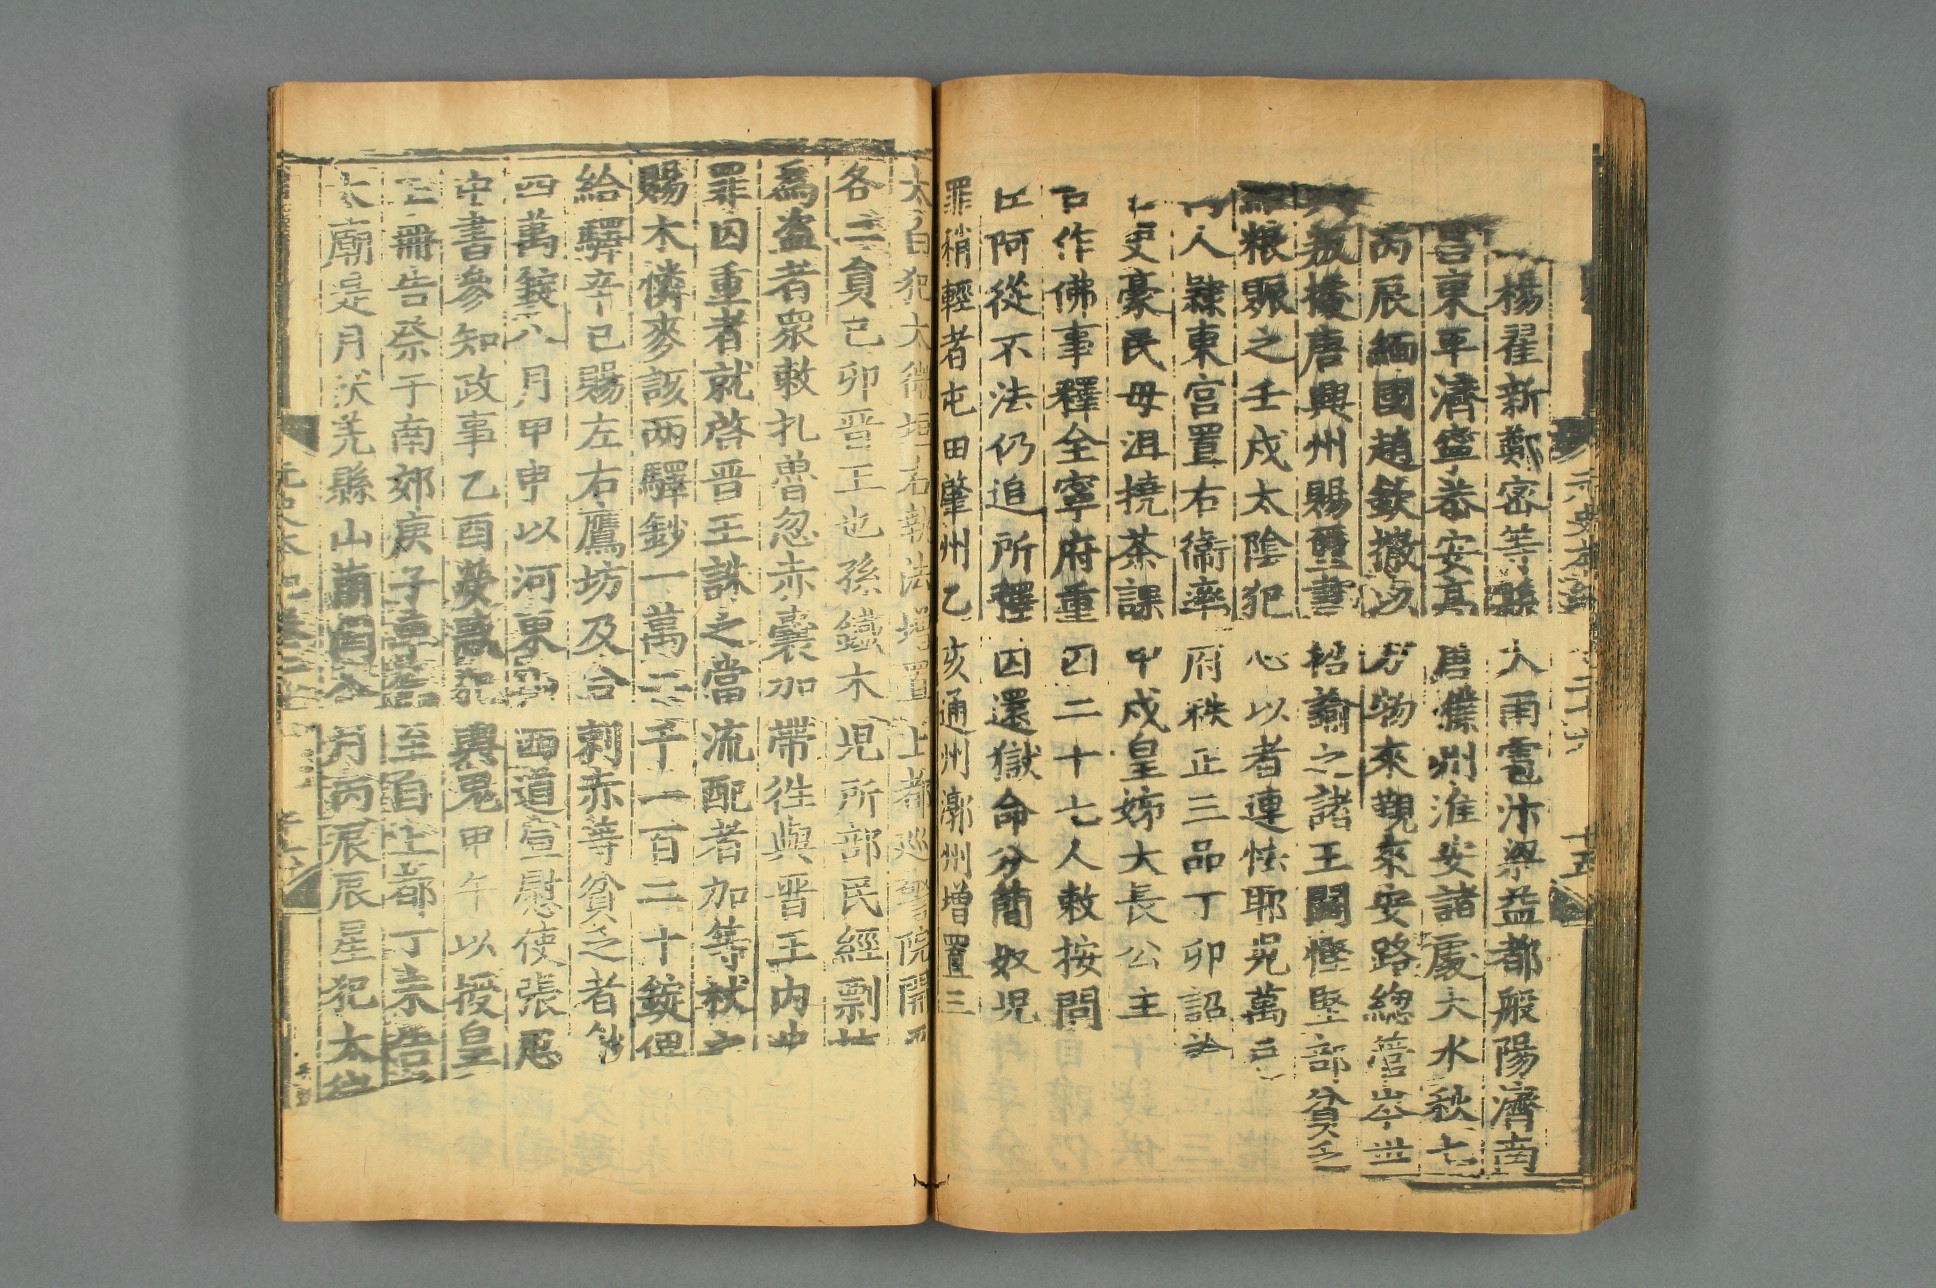 楊翟新鄭密等縣大雨雹汴梁益都般陽濟南
昌東平濟寧泰安高唐濮州淮安諸處大水秋七
丙辰緬國趙欽撒以方物來覲來安路總管岑世
興叛據唐興州賜璽書招諭之諸王闊慳堅部貧乏
給粮賑之壬戌太陰犯心以者連怯耶兒萬户
人隸東宫置右衞率府秩正三品丁卯詔諭
吏豪民毋沮撓茶課甲戌皇姊大長公主
古作佛事釋全寧府重囚二十七人敕按問
阿從不法仍追所釋囚還獄命分簡奴児
罪稍輕者屯田肇州乙亥通州漷州增置三
太白犯太微垣右執法增置上都巡警院開平
各二員己卯晋王也孫鐵木児所部民經剽掠
爲盗者衆敕扎魯忽赤囊加帶徃與晋王内史
罪囚重者就啓晋王誅之當流配者加等杖之
賜木憐麥該兩驛鈔一萬二千一百二十錠俾
給驛辛巳賜左右鷹坊及合剌赤等貧乏者鈔
四萬錠八月甲申以河東西道宣慰使張思
中書參知政事乙酉熒惑犯輿鬼甲午以授皇
玉冊告祭于南郊庚子車駕至自上都丁未告
太廟是月伏羌縣山崩
月丙辰辰星犯太微
元史本紀卷二十六
十五